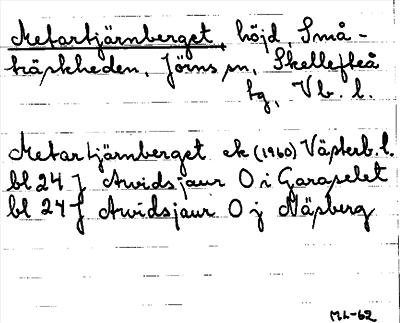 Metartjärnberget, höjd, Små-
träskheden, Jörns sn, Skellefteå
tg, Vb. l.
Metartjärnberget ek (1960) Västerb. l.
bl 24 J Arvidsjaur O i Garaselet
bl 24 J Arvidsjaur O j Näsberg
ML-62